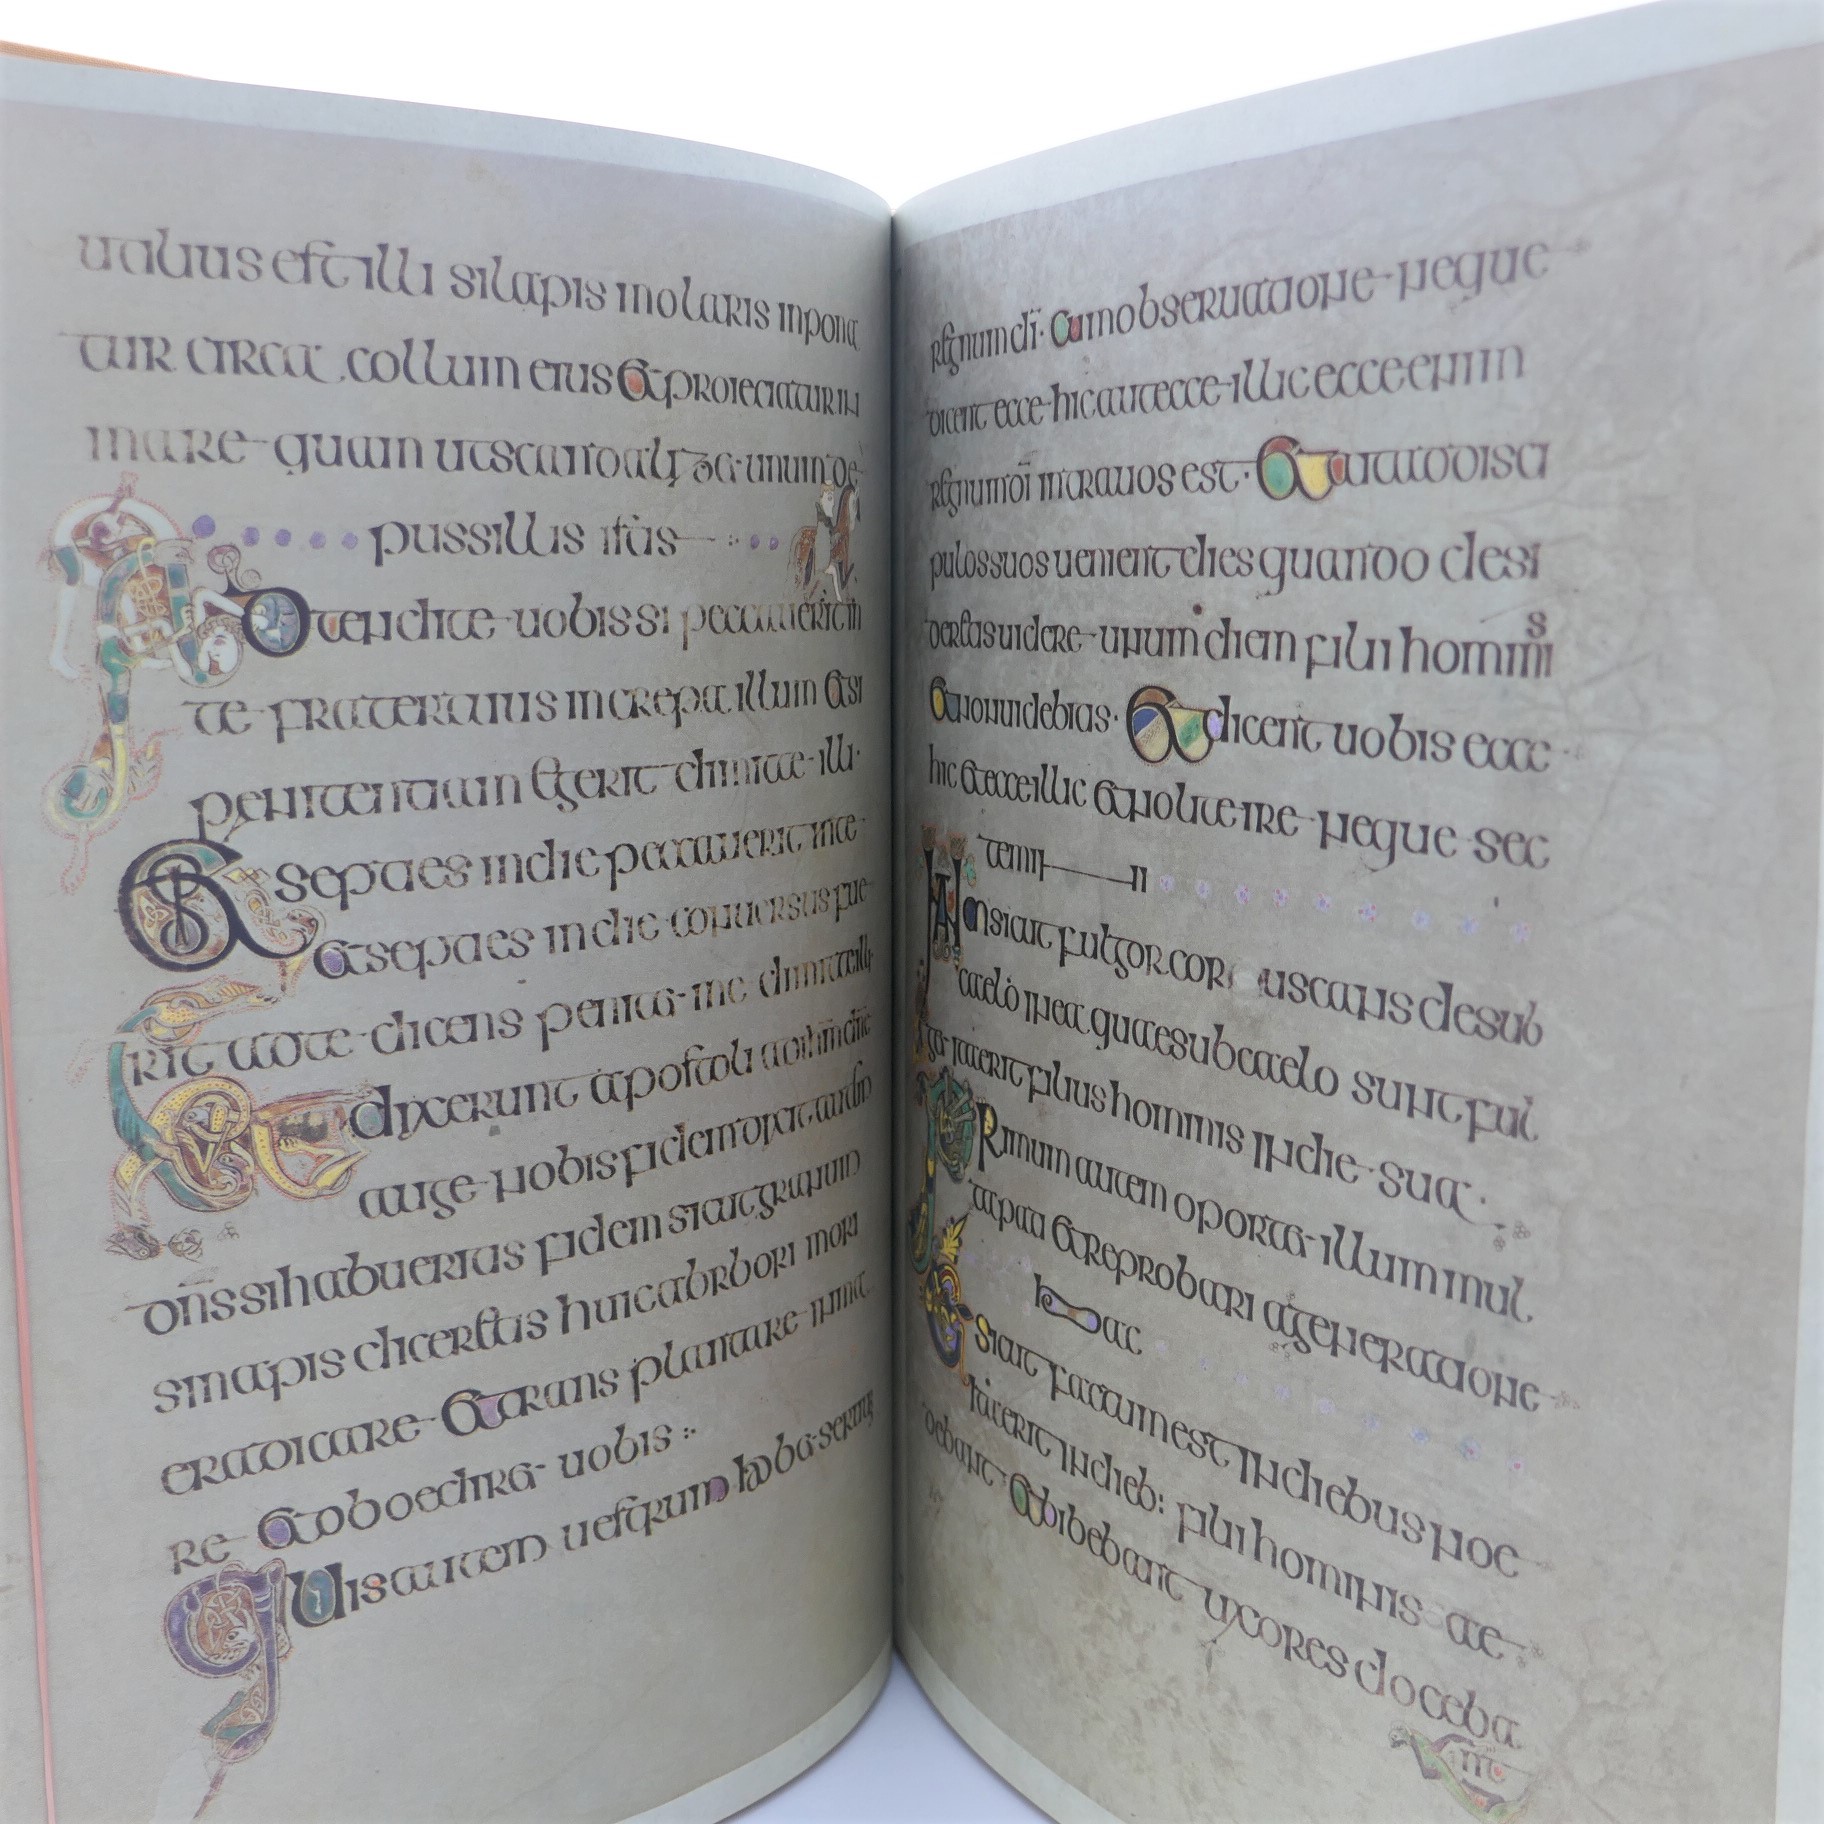 ualius est illi si lapis molaris inpona
tur circa collum eius et proieciatur in
mare quam ut scandalizet unum de
pussillis istis
Attendite uobis si peccauerit in
te frater tuus increpa illum et si
penitentiam egerit dimitte illi
Et si septies in die peccauerit in te
et septies in die conuersus fue
rit ad te dicens penitet me dimitte illi
Et dixerunt apostoli
auge nobis fidem dixit autem
dn̄s si habueritis fidem sicut granum
sinapis diceretis huic arbori mori
eradicare et transplantare in ma
re et oboediret uobis
Quis autem uestrum habet seruum
regnum dī cum obseruatione neque
dicent ecce hic aut ecce illic ecce enim
regnum dī intra uos est Et ait ad disci
pulos suos uenient dies quando desi
deretis uidere unum diem filii hominis
et non uidebitis Et dicent uobis ecce
hic et ecce illic et nolite ire neque sec
temini
Nam sicut fulgor coruscans de sub
caelo in ea quae sub caelo sunt ful
get ita erit filius hominis in die sua
Primum autem oportet illum mul
ta pati et reprobari a generatione
hac
Et sicut factum est in diebus noe
ita erit in dieb: filii hominis ae
debant et bibebant uxores doceba
nt